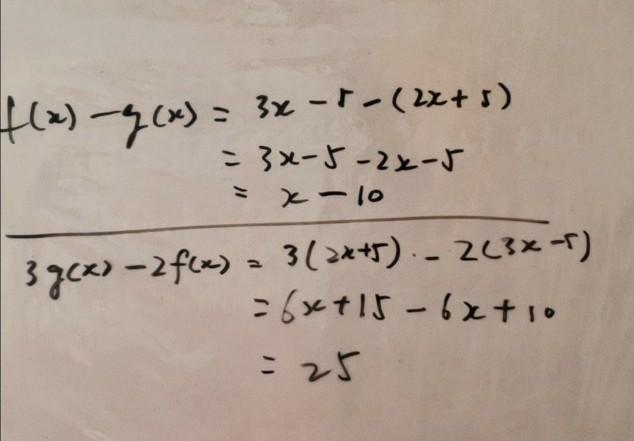 f(x) - g(x) = 3x - 5 - (2x + 5)
= 3x - 5 - 2x - 5
= x - 10
3g(x) - 2f(x) = 3(2x+5) - 2(3x-5)
= 6x + 15 - 6x + 10
= 25